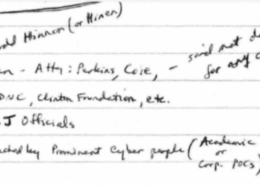 Hinnon (or Hinen)
- Atty: Perkins, Coie, - said not d
for any c
DNC, Clinton Foundation, etc.
J Officials
by Prominent Cyber people (Academic
or
Corp. POCs)